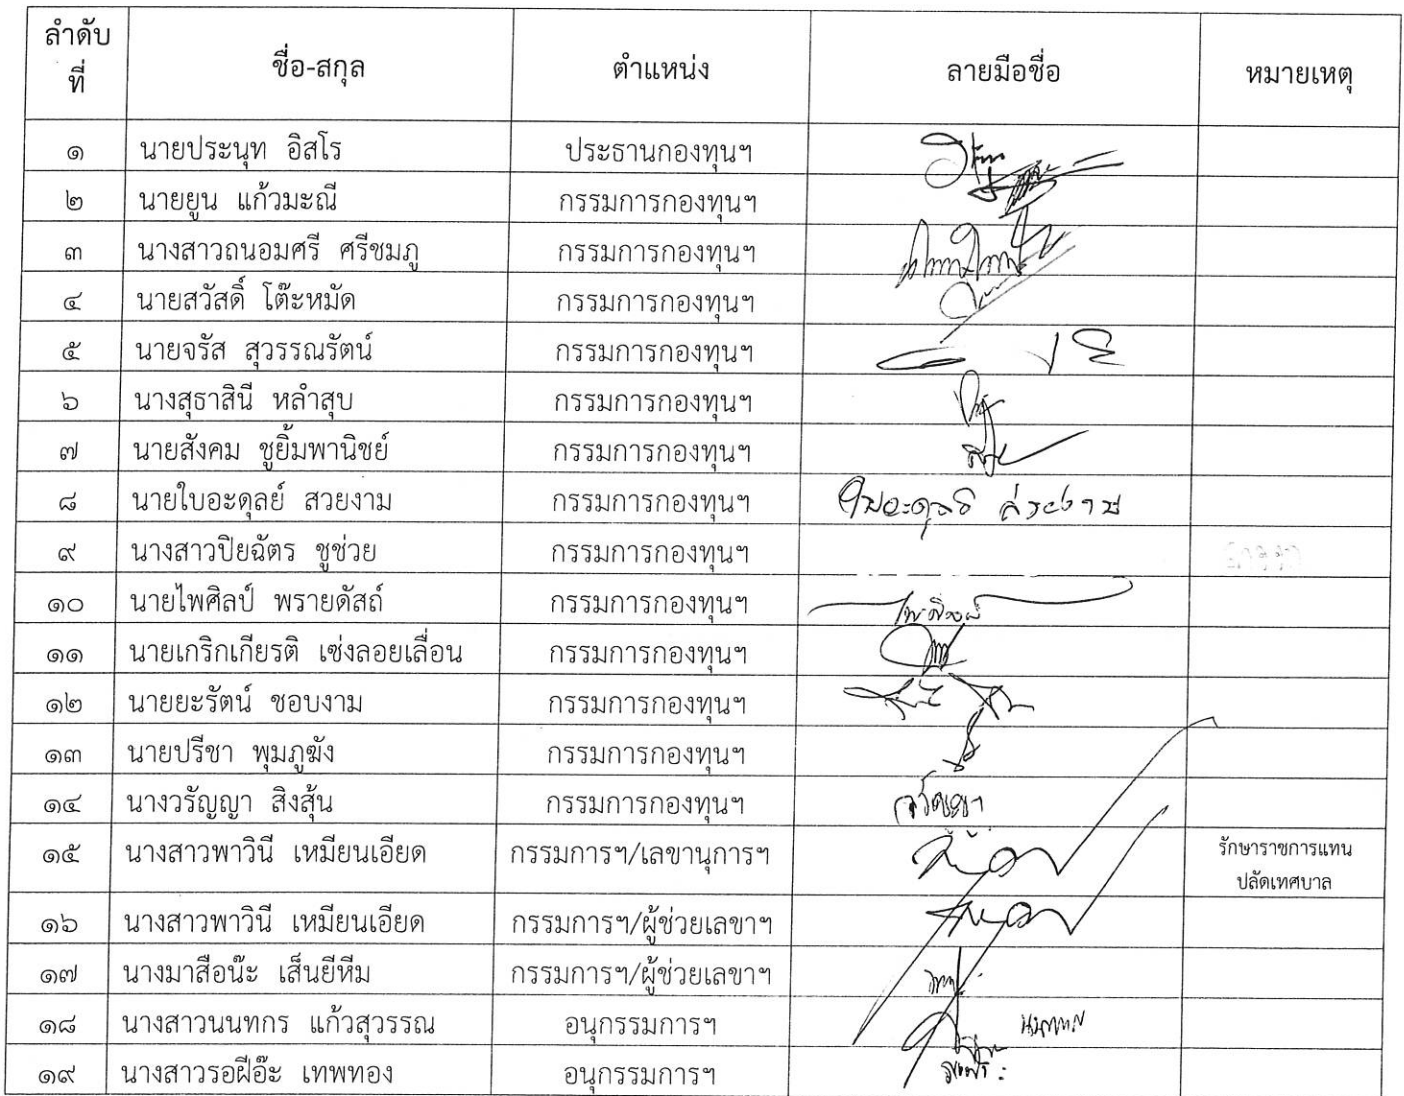 ลำดับ
ที่
ชื่อ-สกุล ตำแหน่ง ลายมือชื่อ หมายเหตุ
๑ นายประนุท อิสโร ประธานกองทุนฯ
๒ นายยูน แก้วมะณี กรรมการกองทุนฯ
๓ นางสาวถนอมศรี ศรีชมภู กรรมการกองทุนฯ
๔ นายสวัสดิ์ โต๊ะหมัด กรรมการกองทุนฯ
๕ นายจรัส สุวรรณรัตน์ กรรมการกองทุนฯ
๖ นางสุธาสินี หลำสุบ กรรมการกองทุนฯ
๗ นายสังคม ชูยิ้มพานิชย์ กรรมการกองทุนฯ
๘ นายใบอะดุลย์ สวยงาม กรรมการกองทุนฯ
๙ นางสาวปิยฉัตร ชูช่วย กรรมการกองทุนฯ
๑๐ นายไพศิลป์ พรายดัสถ์ กรรมการกองทุนฯ
๑๑ นายเกริกเกียรติ เซ่งลอยเลื่อน กรรมการกองทุนฯ
๑๒ นายยะรัตน์ ชอบงาม กรรมการกองทุนฯ
๑๓ นายปรีชา พุมภูฆัง กรรมการกองทุนฯ
๑๔ นางวรัญญา สิงสุ้น กรรมการกองทุนฯ วรัญญา
๑๕ นางสาวพาวินี เหมียนเอียด กรรมการฯ/เลขานุการฯ รักษาราชการแทน
ปลัดเทศบาล
๑๖ นางสาวพาวินี เหมียนเอียด กรรมการฯ/ผู้ช่วยเลขาฯ
๑๗ นางมาสือน๊ะ เส็นยีหีม กรรมการฯ/ผู้ช่วยเลขาฯ
๑๘ นางสาวนนทกร แก้วสุวรรณ อนุกรรมการฯ
๑๙ นางสาวรอฝีอ๊ะ เทพทอง อนุกรรมการฯ